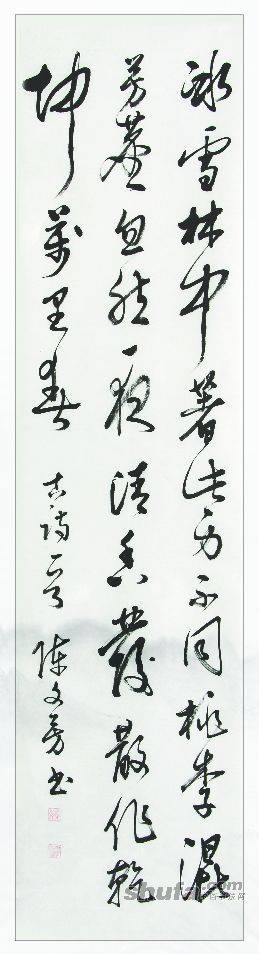 冰雪林中著此身不同桃李混
芳尘忽然一夜清香發散作乾
坤萬里春 古詩一首 陈文芳书
shufa.com